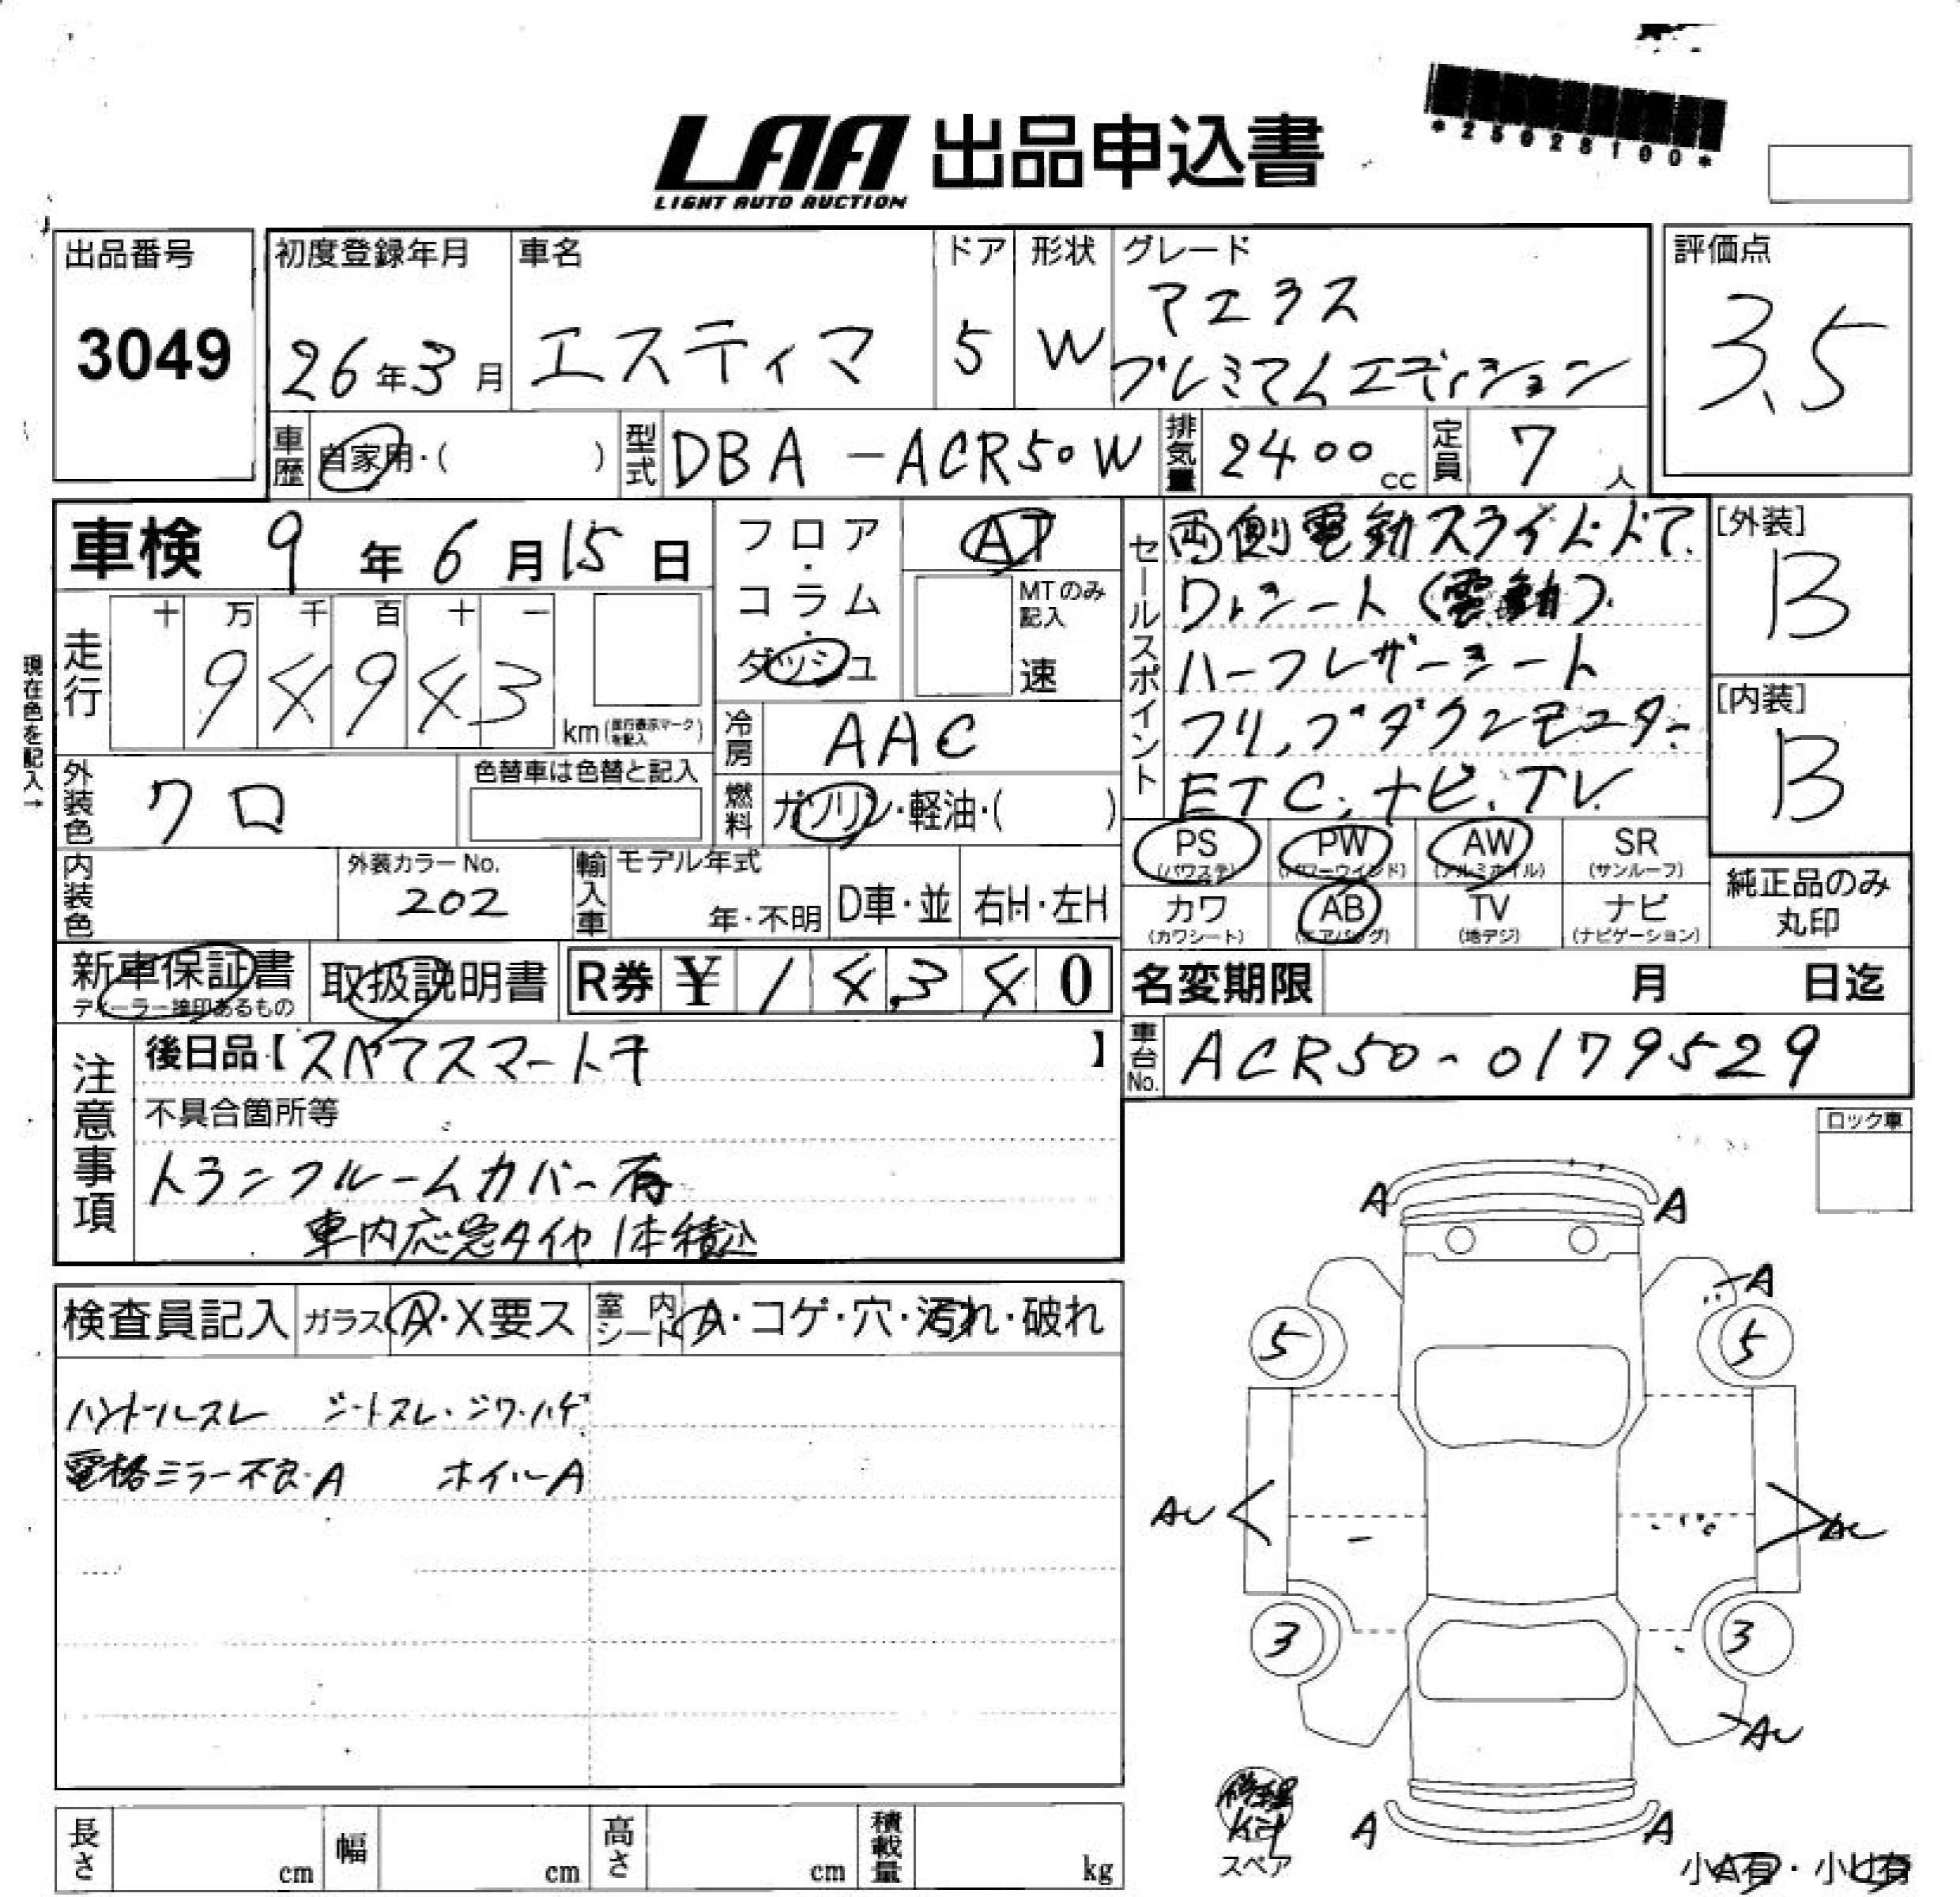 *25028100*
LAA 出品申込書
LIGHT AUTO AUCTION
出品番号
3049
初度登録年月
26年3月
車名
エスティマ
ドア
5
形状
W
グレード
アエラス
プレミアムエディション
評価点
3.5
車歴
自家用・( )
型式
DBA-ACR50W
排気量
2400cc
定員
7人
車検 9年6月15日
フロア・コラム・ダッシュ
AT
MTのみ記入
速
現在色を記入→
走行
十 万 千 百 十 一
94943
km(走行表示マークを記入)
冷房
AAC
燃料
ガソリン・軽油・( )
外装色
クロ
色替車は色替と記入
内装色
外装カラーNo.
202
輸入車
モデル年式
年・不明
D車・並
右H・左H
セールスポイント
両側電動スライドドア.
ワンシート(電動).
ハーフレザーシート
フリップダウンモニター
ETC.ナビ.TV.
[外装]
B
[内装]
B
PS (パワステ)
PW (パワーウィンド)
AW (アルミホイル)
SR (サンルーフ)
カワ (カワシート)
AB (エアバッグ)
TV (地デジ)
ナビ (ナビゲーション)
純正品のみ丸印
新車保証書
ディーラー捺印あるもの
取扱説明書
R券 ¥14340
名変期限 月 日迄
車台No.
ACR50-0179529
注意事項
後日品【スペアスマートキー】
不具合箇所等
トランクルームカバー有
車内応急タイヤ1本積込
ロック車
検査員記入
ガラス A・X要ス
室内シート A・コゲ・穴・汚れ・破れ
ハンドルスレ シートスレ・シワ・ハゲ
電格ミラー不良・A ホイルA
A A
A
5 5
AU AU
3 3
AU
A A
修理Kit
スペア
小A有・小U有
長さ cm
幅 cm
高さ cm
積載量 kg